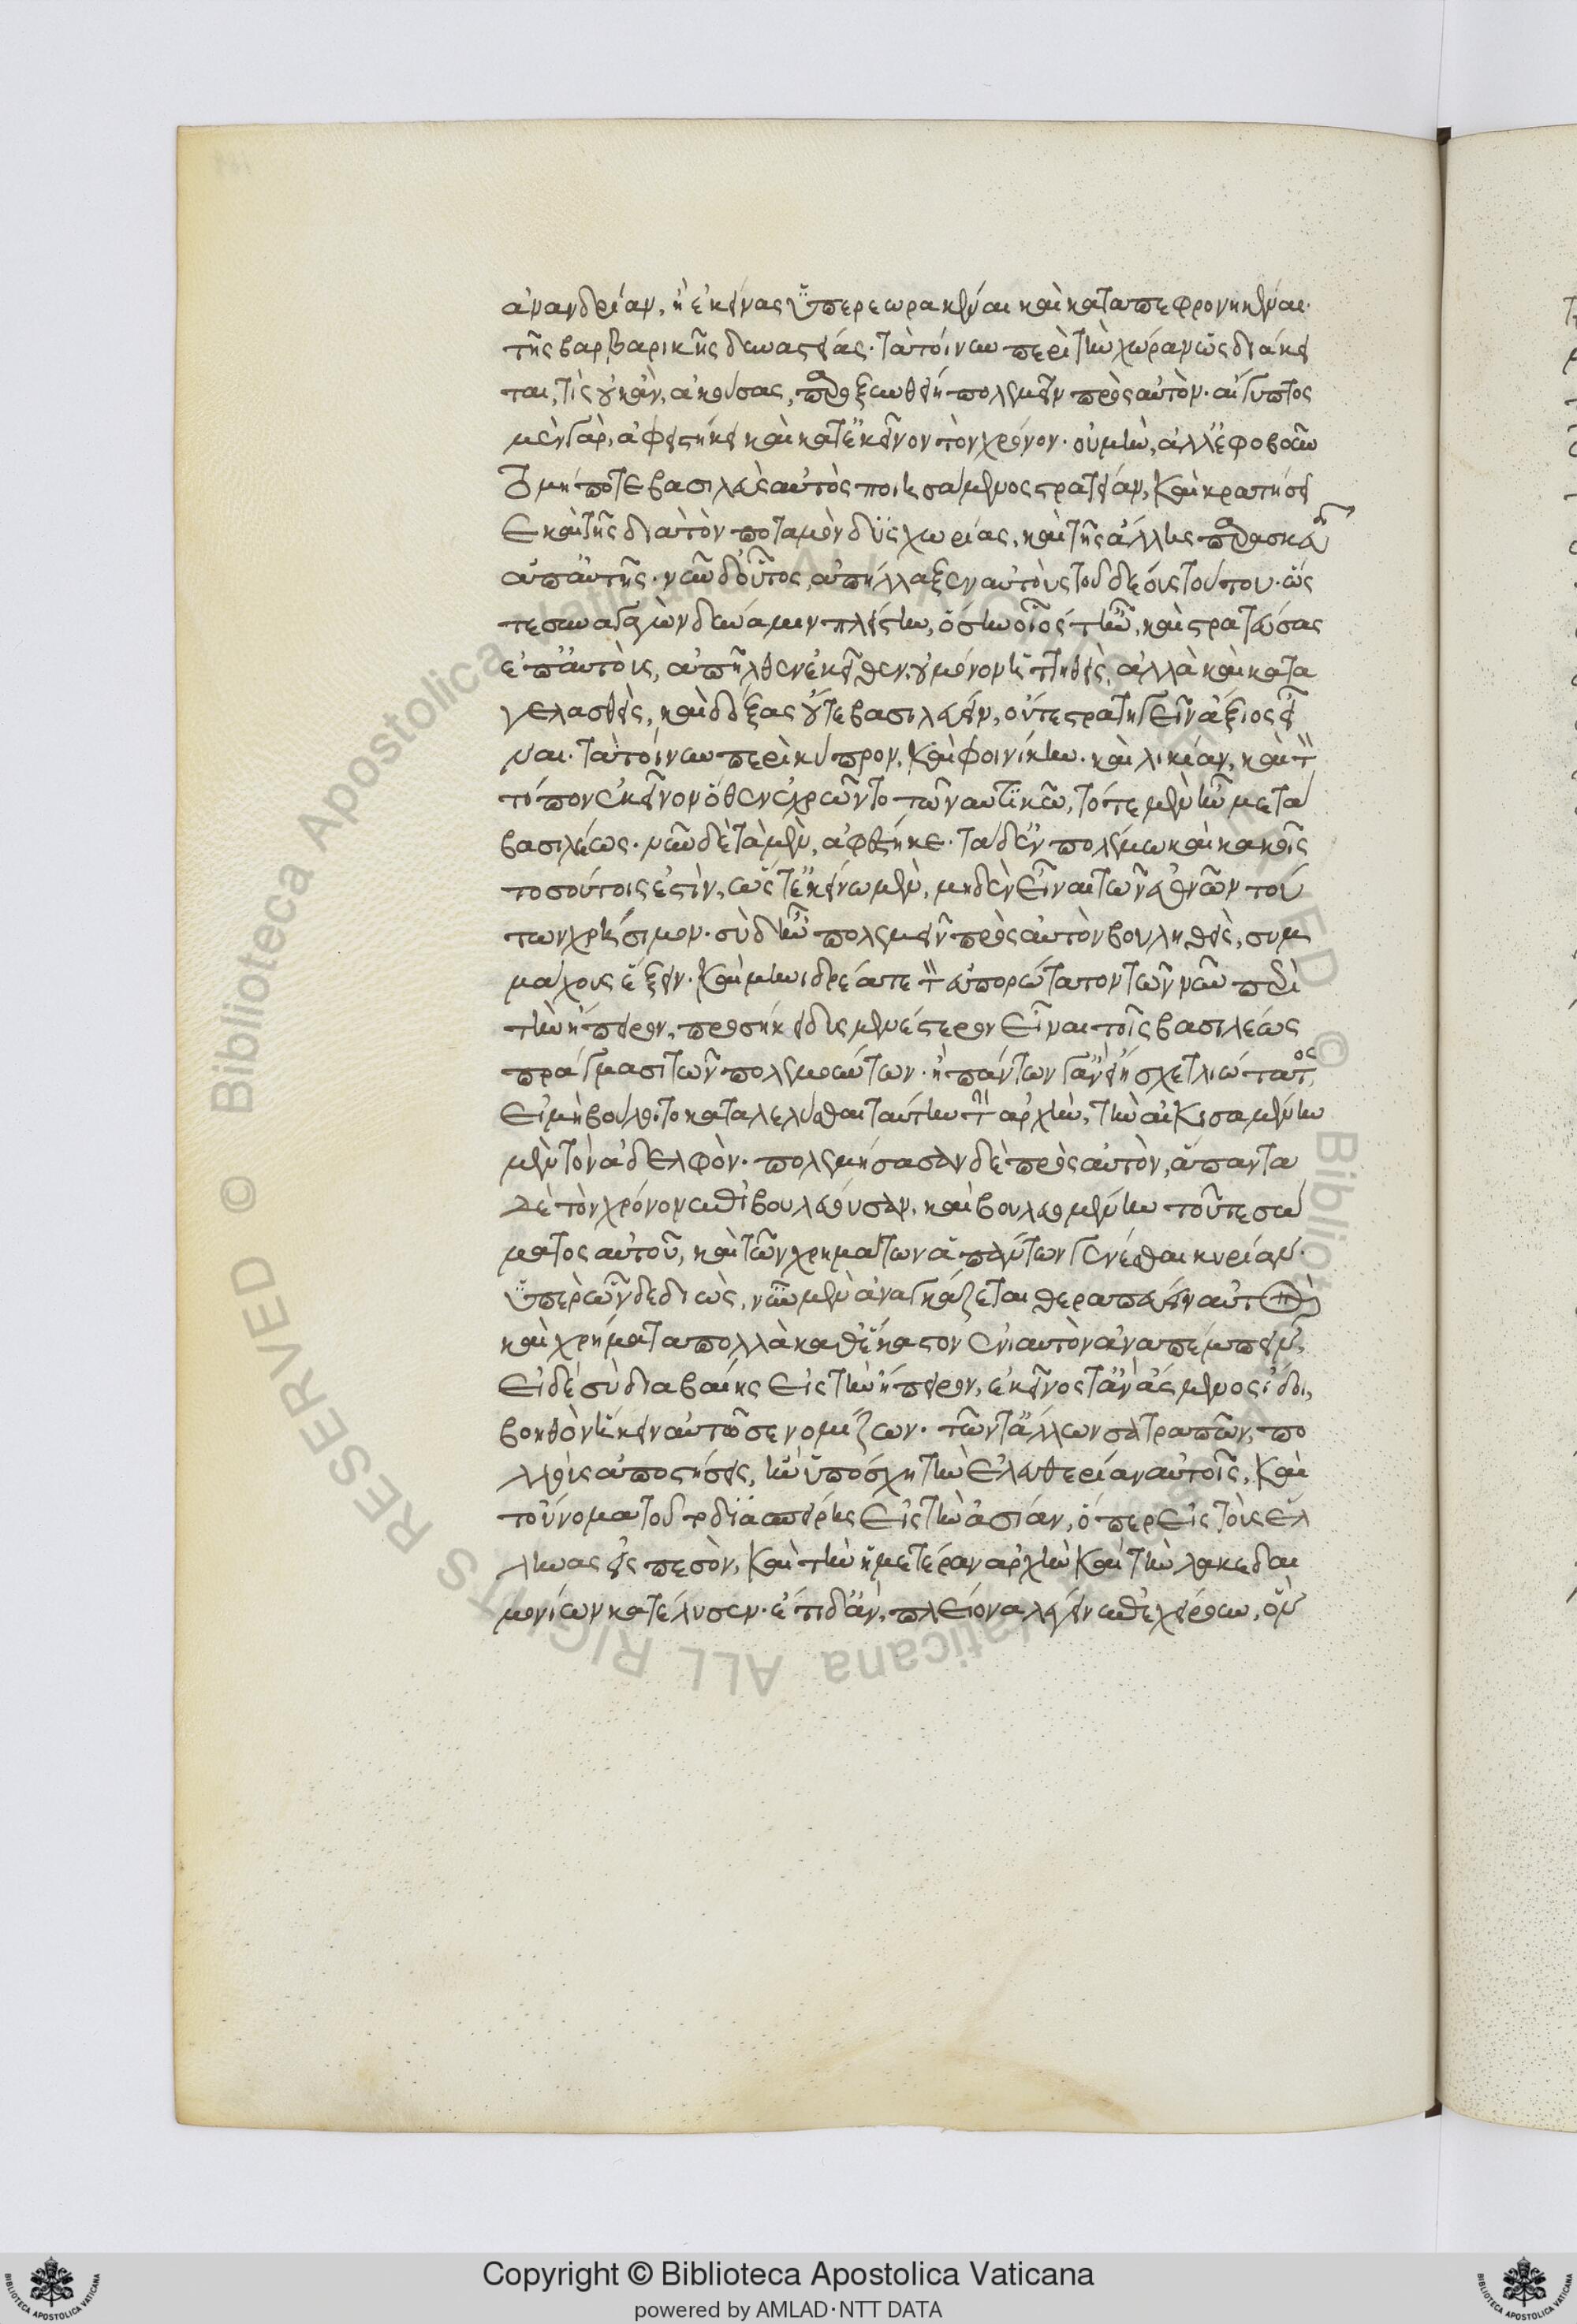 ἀνανδρίαν, ἢ ἐκείνας ὑπερεωρακέναι καὶ καταπεφρονηκέναι·
τῆς βαρβαρικῆς δυναστείας· τὰ τοίνυν περὶ τὴν χώραν ὡς διάκει
ται, τίς οὐκ ἂν, ἀκούσας, παροξυνθείη πολεμεῖν πρὸς αὐτὸν· αἴγυπτος
μὲν γὰρ, ἀφειστήκει καὶ κατ' ἐκεῖνον τὸν χρόνον· οὐ μὴν, ἀλλ' ἐφοβοῦν
το μή ποτε βασιλεὺς αὐτὸς ποιησάμενος στρατείαν, καὶ κρατήσει
ε καὶ τῆς διὰ τὸν ποταμὸν δυσχωρίας, καὶ τῆς ἄλλης παρασκευῆς
ἁπάντης· νῦν δ' οὗτος, ἀπήλλαξεν αὐτοὺς τοῦ δέους τούτου· ὥς
τε συναγαγὼν δύναμιν πλείστην, ὅσην οἷός τ' ἦν, καὶ στρατεύσας
ἐπ' αὐτοὺς, ἀπῆλθεν ἐκεῖθεν, οὐ μόνον ἡττηθεὶς, ἀλλὰ καὶ κατα
γελασθεὶς, καὶ δόξας οὔτε βασιλεύειν, οὔτε στρατηγεῖν ἄξιος εἶ
ναι· τὰ τοίνυν περὶ κύπρον, καὶ φοινίκην· καὶ λικίαν, καὶ τὸν
τόπον ἐκεῖνον ὅθεν ἐχρῶντο τῷ ναυτικῷ, τότε μὲν ἦν μετὰ
βασιλέως· νῦν δὲ τὰ μὲν, ἀφέστηκε· τὰ δ' ἐν πολέμῳ καὶ κακοῖς
τοσούτοις ἐστὶν, ὥστ' ἐκείνῳ μὲν, μηδὲν εἶναι τῶν ἐθνῶν τού
των χρήσιμον· σὺ δ' ἢν πολεμεῖν πρὸς αὐτὸν βουληθεὶς, συμ
μάχοις ἕξειν· καὶ μὴν ἰδριέα τε τὸν εὐπορώτατον τῶν νῦν περὶ
τὴν ἤπειρον, προσήκει δυσμενέστερον εἶναι τοῖς βασιλέως
πράγμασι τῶν πολεμούντων· ἢ πάντων γ' ἂν εἴη σχετλιώτατος,
εἰ μὴ βούλοιτο καταλελύσθαι ταύτην τὴν ἀρχὴν, τὴν αἰκισαμένην
μὲν τὸν ἀδελφὸν· πολεμήσασαν δὲ πρὸς αὐτὸν, ἅπαντα
δὲ τὸν χρόνον ἐπιβουλεύουσαν, καὶ βουλευομένην τοῦ τε σώ
ματος αὐτοῦ, καὶ τῶν χρημάτων ἁπάντων γενέσθαι κυρίαν·
ὑπὲρ ὧν δεδιὼς, νῦν μὲν ἀναγκάζεται θεραπεύειν αὐτὸν
καὶ χρήματα πολλὰ καθ' ἕκαστον ἐνιαυτὸν ἀναπέμπειν,
εἰ δὲ σὺ διαβαίης εἰς τὴν ἤπειρον, ἐκεῖνος τ' ἂν ἄσμενος ἴδοι,
βοηθὸν ἥκειν αὐτῷ σε νομίζων· τῶν τ' ἄλλων σατραπῶν, πο
λλοὺς ἀποστήσεις, ἢν ὑπόσχῃ τὴν ἐλευθερίαν αὐτοῖς, καὶ
τοὔνομα τοῦτο διασπείρης εἰς τὴν ἀσίαν, ὅπερ εἰς τοὺς ἕλ
ληνας εἰσπεσὸν, καὶ τὴν ἡμετέραν ἀρχὴν καὶ τὴν λακεδαι
μονίων κατέλυσεν· ἔτι δ' ἂν, πλείονα λέγειν ἐπεχείρουν, ὃν